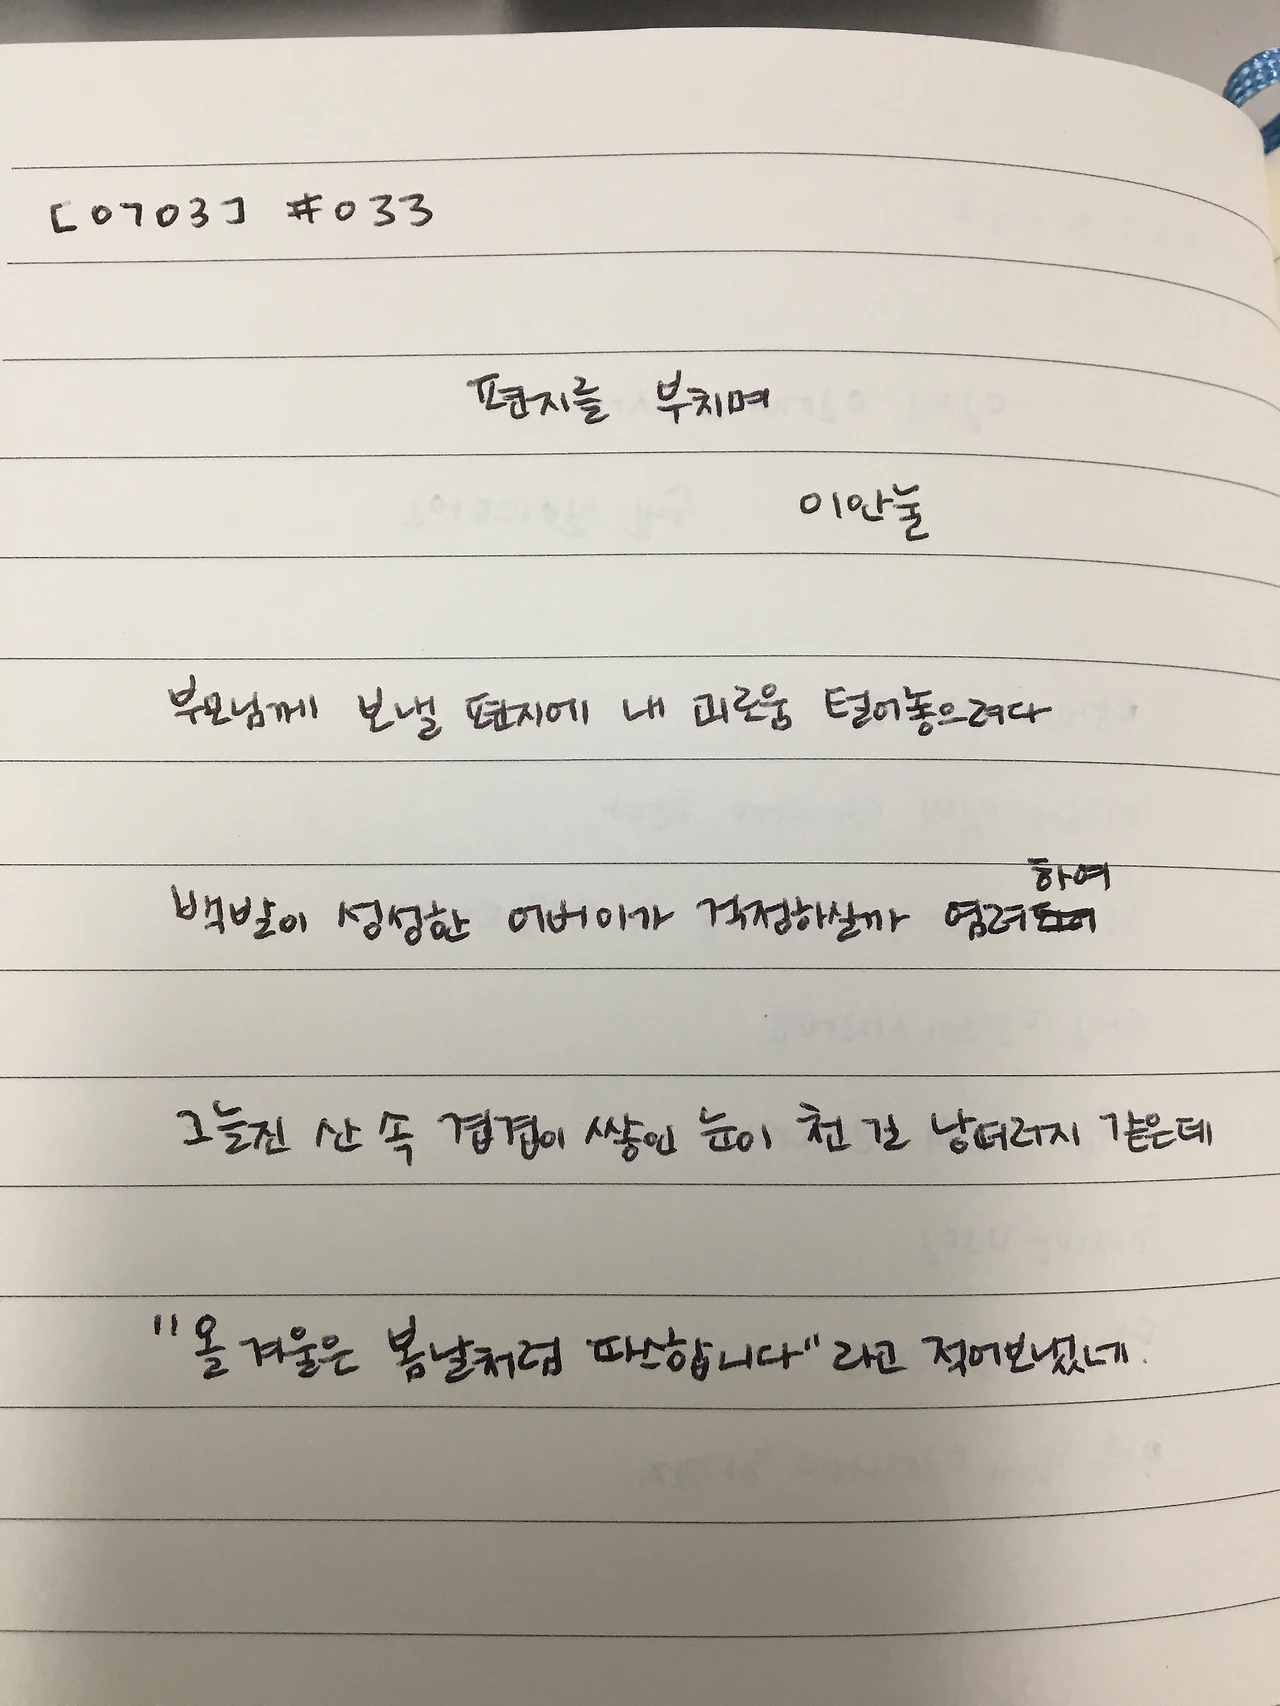 [0703] #033
편지를 부치며
이안눌
부모님께 보낼 편지에 내 괴로움 털어놓으려다
백발이 성성한 어버이가 걱정하실까 염려하여
그늘진 산 속 겹겹이 쌓인 눈이 천 길 낭떠러지 같은데
"올 겨울은 봄날처럼 따스합니다"라고 적어보냈네.